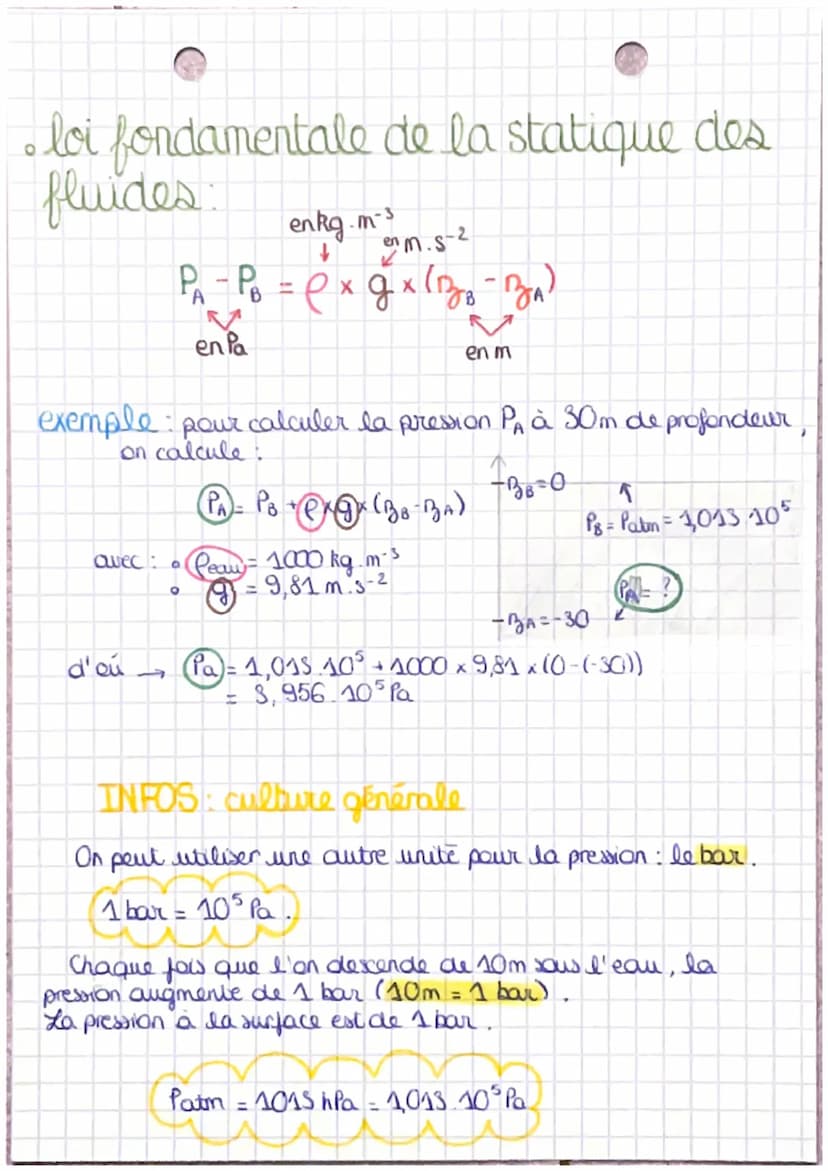 • loi fondamentale de la statique des
fluides :
en kg.m⁻³
en m.s⁻²
P_A - P_B = ρ × g × (z_B - z_A)
en Pa
en m
exemple : pour calculer la pression P_A à 30m de profondeur,
on calcule :
P_A = P_B + ρ × g × (z_B - z_A)
- z_B = 0
P_B = Patm = 1,013.10⁵
avec : • ρeau = 1000 kg.m⁻³
• g = 9,81 m.s⁻²
P_A = ?
- z_A = -30
d'où → Pa = 1,013.10⁵ + 1000 × 9,81 × (0-(-30))
= 3,956.10⁵ Pa
INFOS : culture générale
On peut utiliser une autre unité pour la pression : le bar.
1 bar = 10⁵ Pa.
Chaque fois que l'on descende de 10m sous l'eau, la
pression augmente de 1 bar (10m = 1 bar).
La pression à la surface est de 1 bar.
Patm = 1013 hPa = 1,013.10⁵ Pa